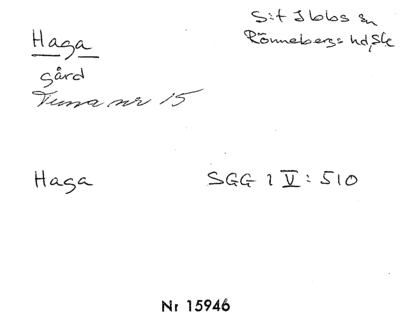 Haga
S:t Ibbs sn
Rönnebergs hd, Sk
gård
Tuna nr 15
Haga SGG 1 V: 510
Nr 15946